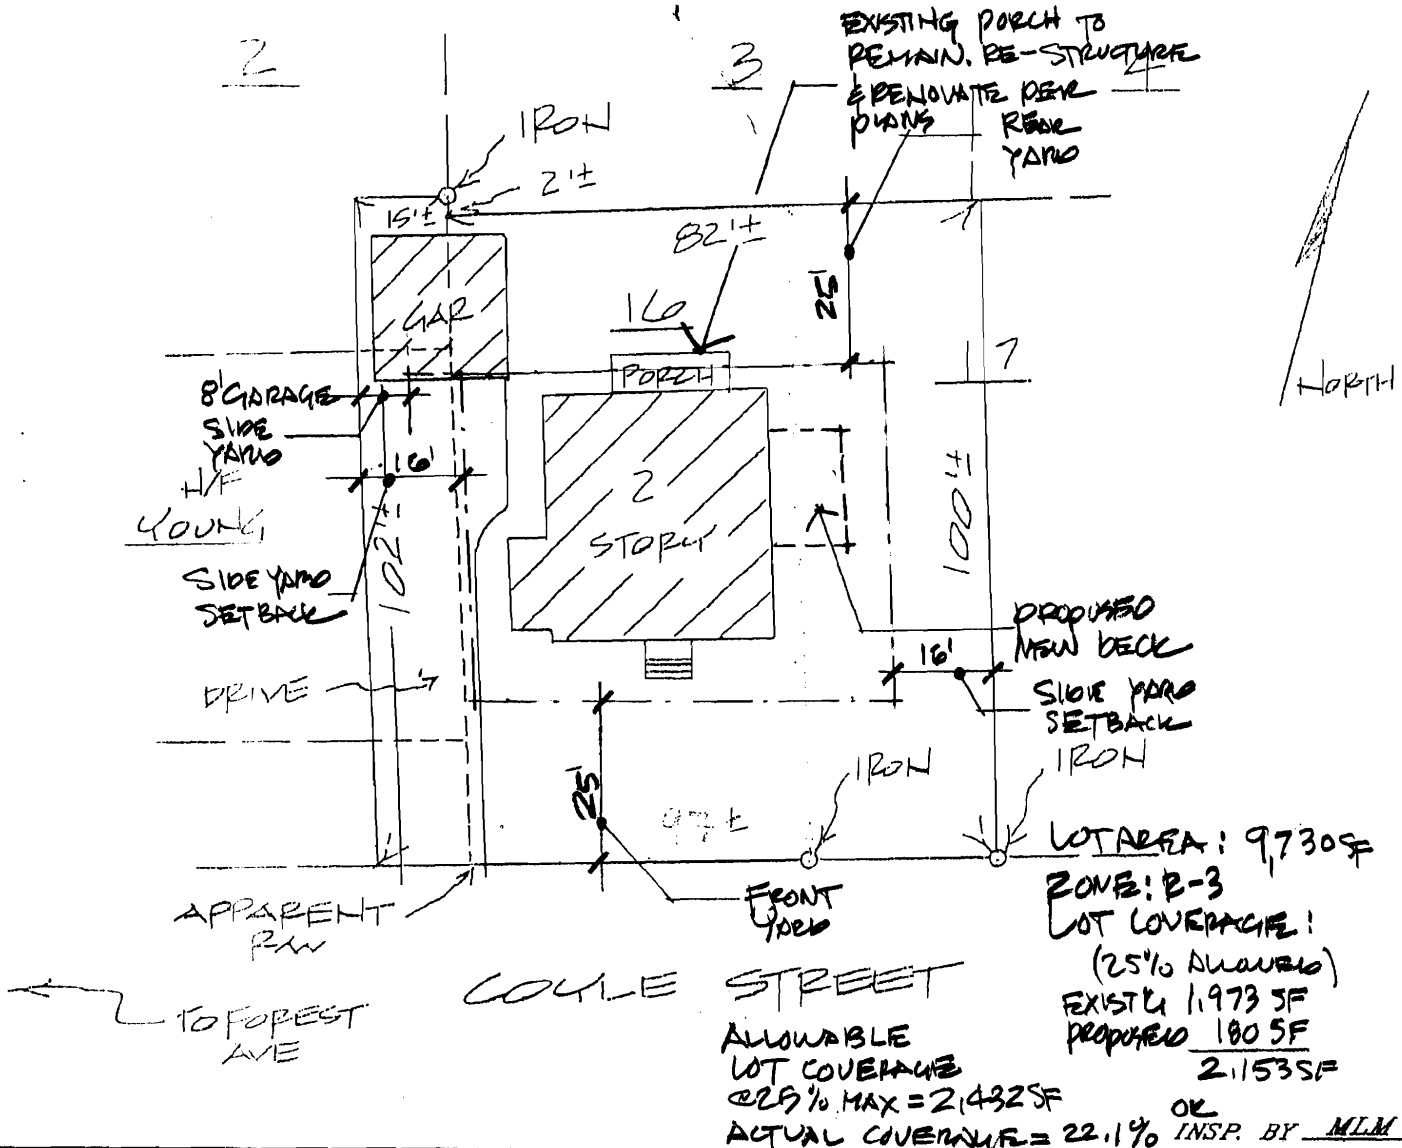 2
3
4
EXISTING PORCH TO
REMAIN. RE-STRUCTURE
& RENOVATE PER
PLANS
REAR
YARD
IRON
2'±
15'±
82'±
25'
GAR
16
PORCH
17
NORTH
8' GARAGE
SIDE
YARD
16'
N/F
YOUNG
102'±
2
STORY
100'±
SIDE YARD
SETBACK
PROPOSED
NEW DECK
16'
DRIVE
SIDE YARD
SETBACK
IRON
IRON
25'
97±
FRONT
YARD
APPARENT
R/W
COYLE STREET
TO FOREST
AVE
LOT AREA: 9,730 SF
ZONE: R-3
LOT COVERAGE:
(25% ALLOWED)
EXIST'G 1,973 SF
PROPOSED 180 SF
2,153 SF
ALLOWABLE
LOT COVERAGE
@25% MAX = 2,432 SF
ACTUAL COVERAGE = 22.1% OK
INSP. BY MLM